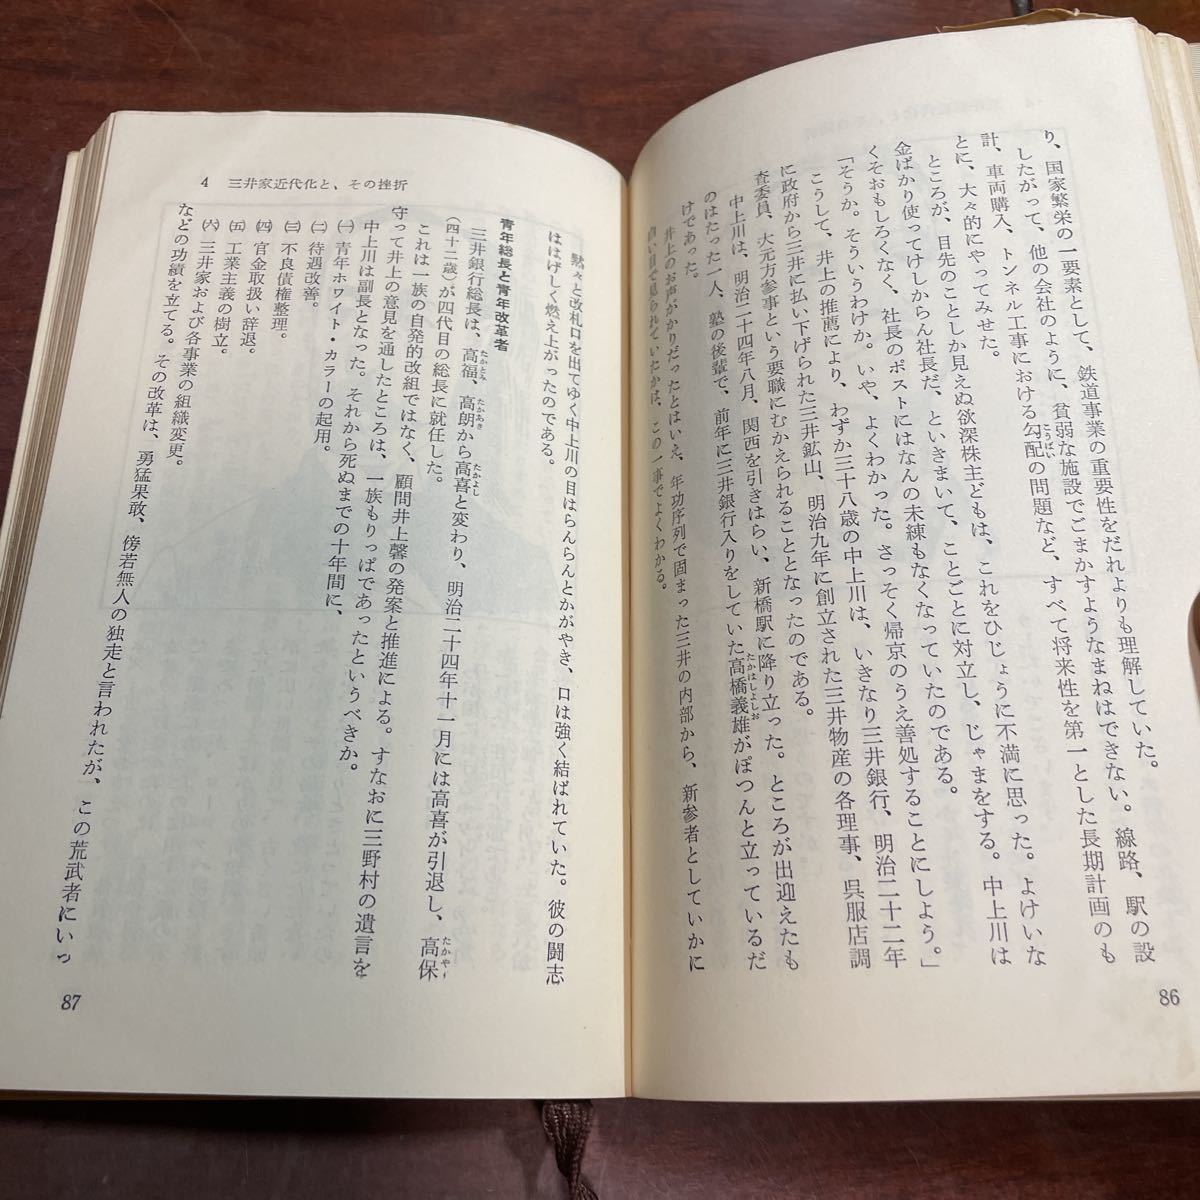 り、国家繁栄の一要素として、鉄道事業の重要性をだれよりも理解していた。
したがって、他の会社のように、貧弱な施設でごまかすようなまねはできない。線路、駅の設
計、車両購入、トンネル工事における勾配の問題など、すべて将来性を第一とした長期計画のも
とに、大々的にやってみせた。
ところが、目先のことしか見えぬ欲深株主どもは、これをひじょうに不満に思った。よけいな
金ばかり使ってけしからん社長だ、といきまいて、ことごとに対立し、じゃまをする。中上川は
くそおもしろくなく、社長のポストにはなんの未練もなくなっていたのである。
「そうか。そういうわけか。いや、よくわかった。さっそく帰京のうえ善処することにしよう。」
こうして、井上の推薦により、わずか三十八歳の中上川は、いきなり三井銀行、明治二十二年
に政府から三井に払い下げられた三井鉱山、明治九年に創立された三井物産の各理事、呉服店調
査委員、大元方参事という要職にむかえられることとなったのである。
中上川は、明治二十四年八月、関西を引きはらい、新橋駅に降り立った。ところが出迎えたも
のはたった一人、塾の後輩で、前年に三井銀行入りをしていた高橋義雄がぽつんと立っているだ
けであった。
井上のお声がかりだったとはいえ、年功序列で固まった三井の内部から、新参者としていかに
白い目で見られていたかは、この一事でよくわかる。
86
4 三井家近代化と、その挫折
黙々と改札口を出てゆく中上川の目はらんらんとかがやき、口は強く結ばれていた。彼の闘志
ははげしく燃え上がったのである。
青年総長と青年改革者
三井銀行総長は、高福、高朗から高喜と変わり、明治二十四年十一月には高喜が引退し、高保
(四十二歳)が四代目の総長に就任した。
これは一族の自発的改組ではなく、顧問井上馨の発案と推進による。すなおに三野村の遺言を
守って井上の意見を通したところは、一族もりっぱであったというべきか。
中上川は副長となった。それから死ぬまでの十年間に、
㈠ 青年ホワイト・カラーの起用。
㈡ 待遇改善。
㈢ 不良債権整理。
㈣ 官金取扱い辞退。
㈤ 工業主義の樹立。
㈥ 三井家および各事業の組織変更。
などの功績を立てる。その改革は、勇猛果敢、傍若無人の独走と言われたが、この荒武者にいっ
87